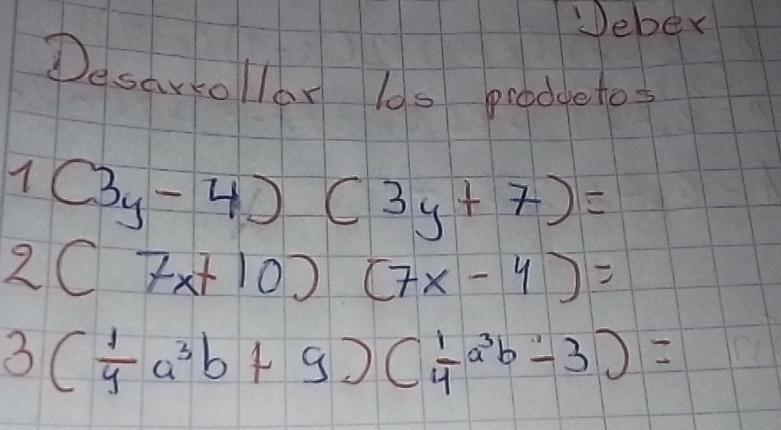 Deber
Desarrollar los productos
1 (3y - 4) (3y + 7) =
2 (7x + 10) (7x - 4) =
3 (1/4 a³b + 9) (1/4 a³b - 3) =